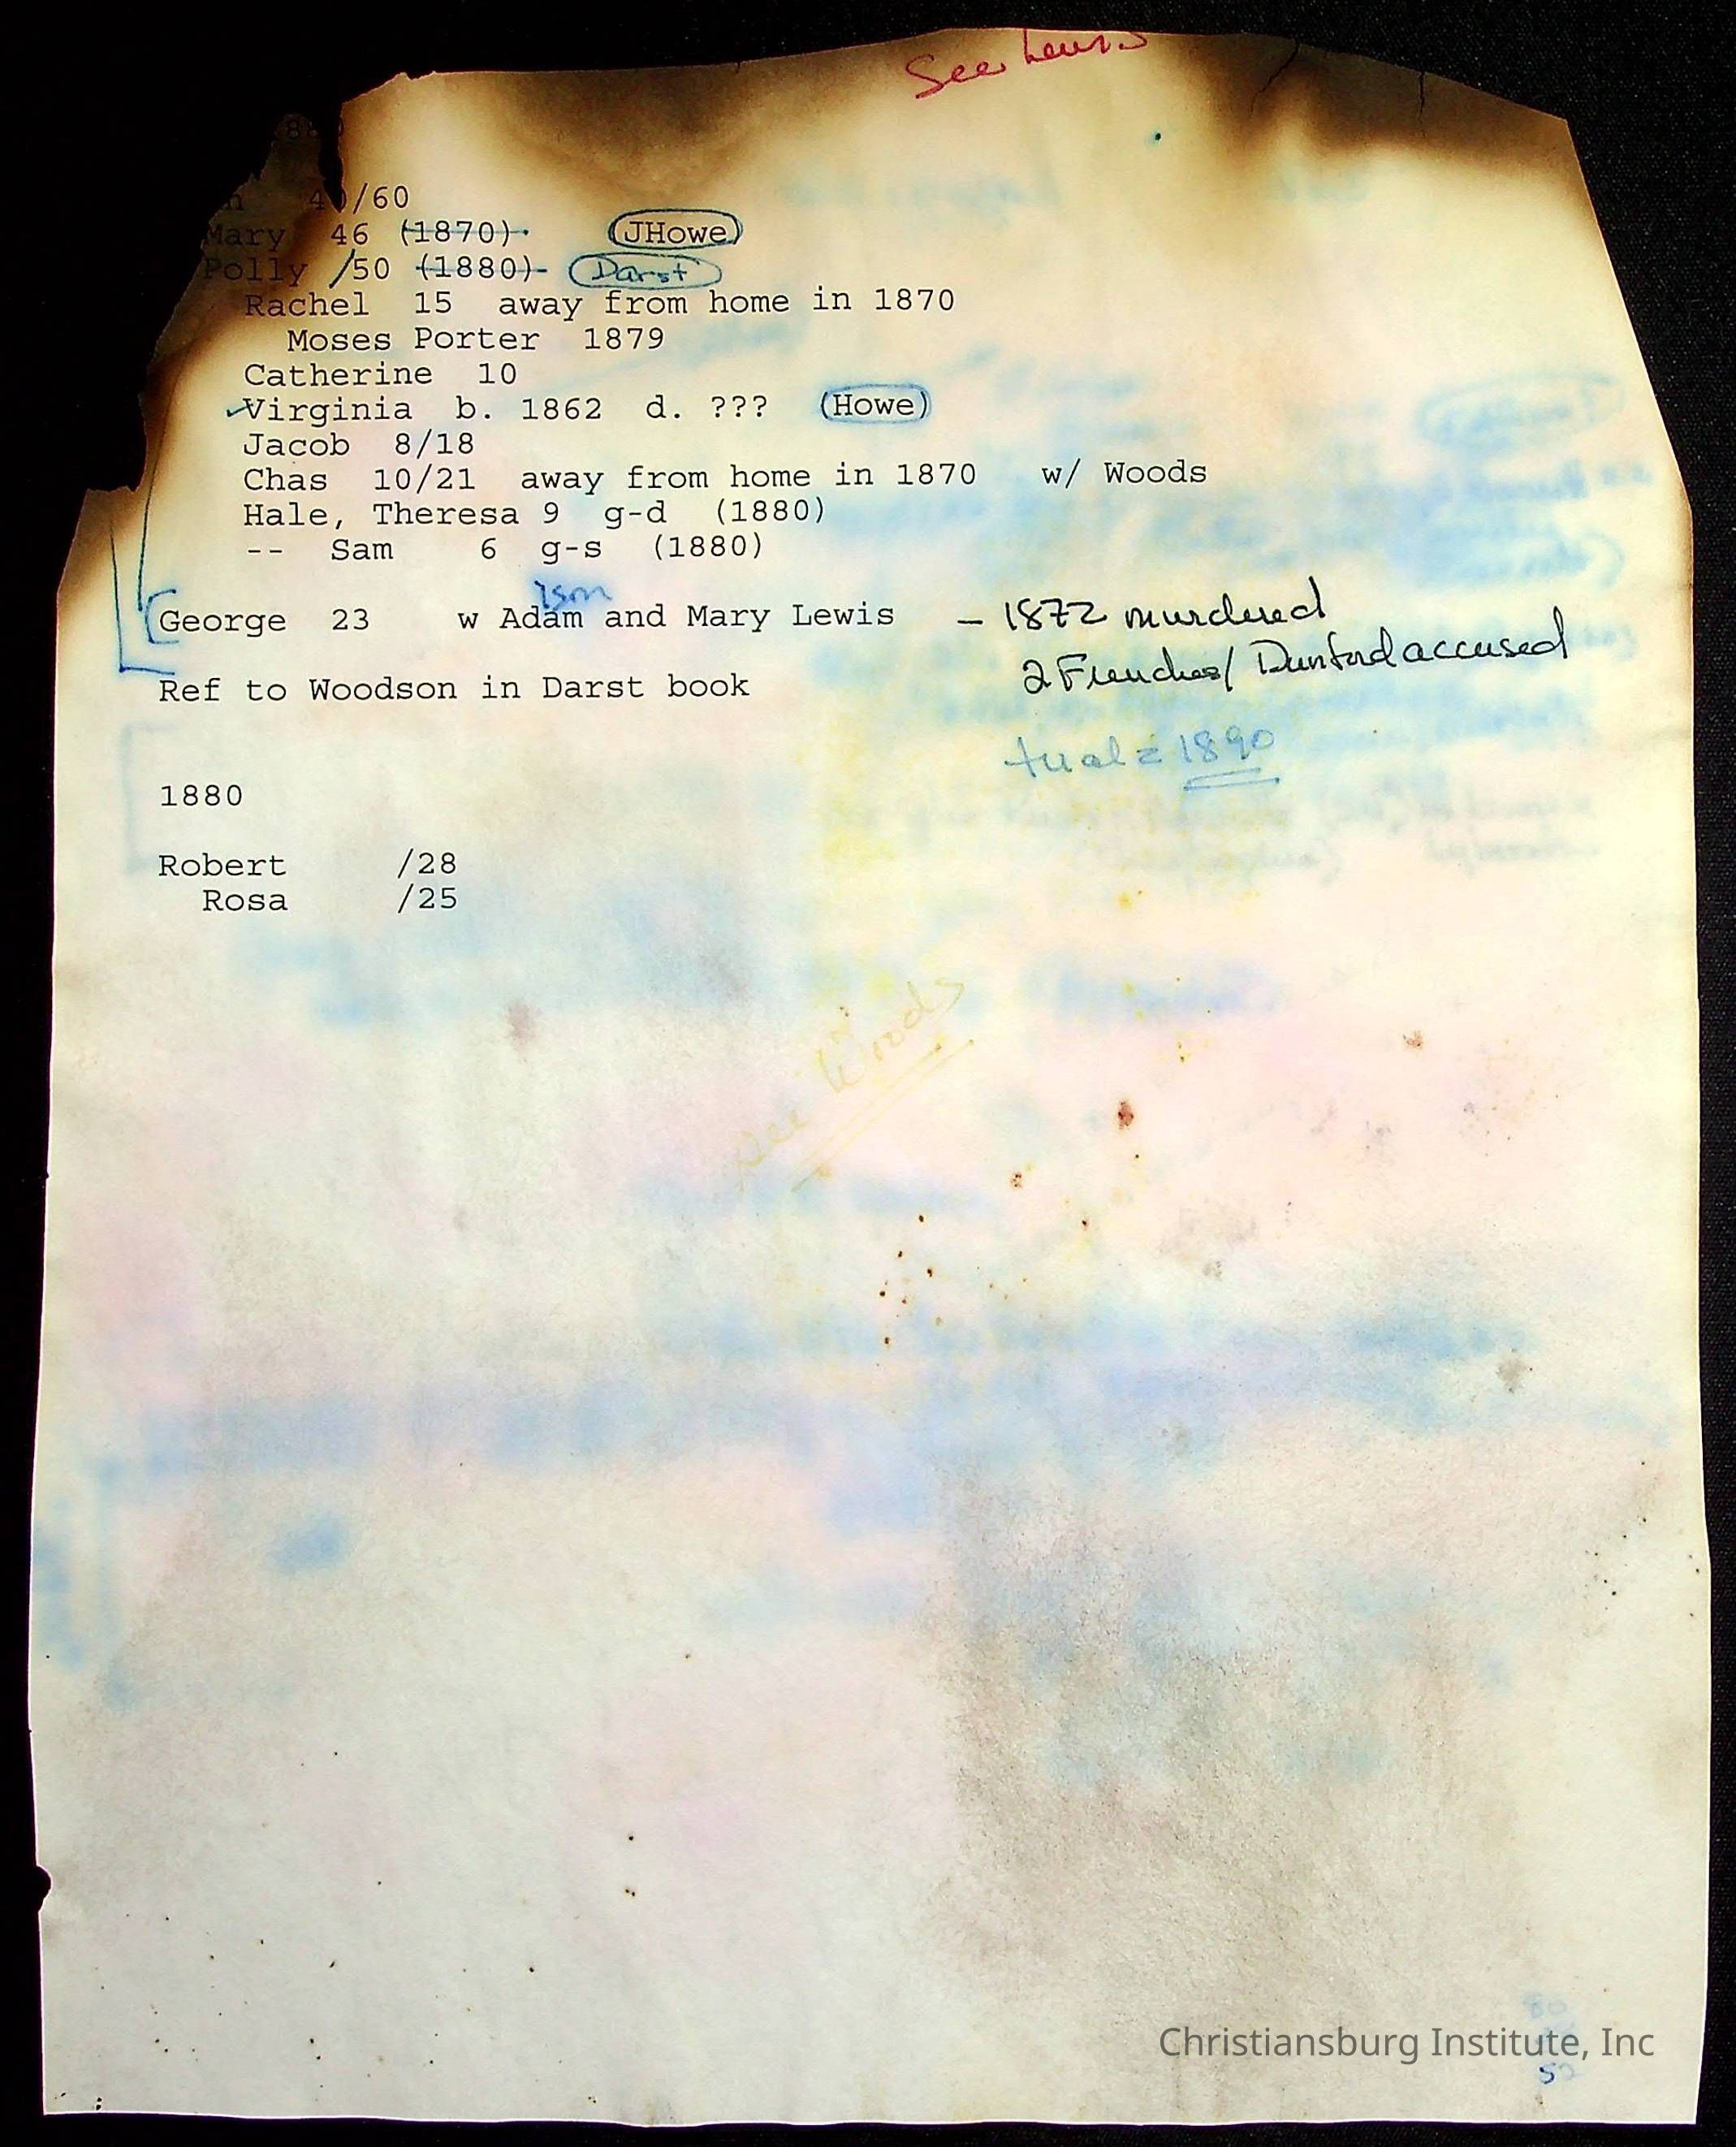 See Lewis
40/60
Mary 46 (1870) (JHowe)
Polly /50 (1880) Darst
Rachel 15 away from home in 1870
Moses Porter 1879
Catherine 10
Virginia b. 1862 d. ??? (Howe)
Jacob 8/18
Chas 10/21 away from home in 1870 w/ Woods
Hale, Theresa 9 g-d (1880)
-- Sam 6 g-s (1880)
George 23 w Adam and Mary Lewis – 1872 murdered
2 Frenches/ Dunford accused
Ref to Woodson in Darst book
trial = 1890
1880
Robert /28
Rosa /25
See Woods
Christiansburg Institute, Inc